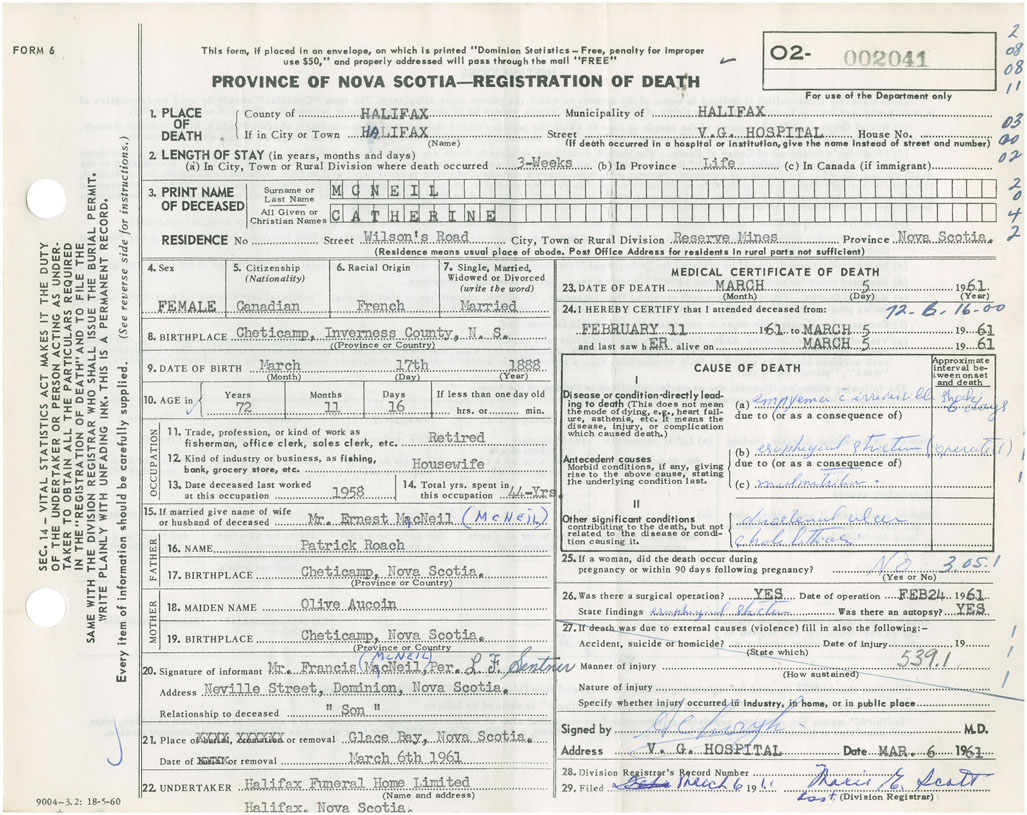 FORM 6
This form, if placed in an envelope, on which is printed "Dominion Statistics – Free, penalty for improper
use $50," and properly addressed will pass through the mail "FREE"
PROVINCE OF NOVA SCOTIA—REGISTRATION OF DEATH
02- 002041
For use of the Department only
2
08
08
11
03
00
02
2
0
4
2
1. PLACE OF DEATH
County of HALIFAX Municipality of HALIFAX
If in City or Town HALIFAX Street V.G. HOSPITAL House No.
(Name) (If death occurred in a hospital or institution, give the name instead of street and number)
2. LENGTH OF STAY (in years, months and days)
(a) In City, Town or Rural Division where death occurred 3-Weeks (b) In Province Life (c) In Canada (if immigrant)
3. PRINT NAME OF DECEASED
Surname or Last Name MCNEIL
All Given or Christian Names CATHERINE
RESIDENCE No Street Wilson's Road City, Town or Rural Division Reserve Mines Province Nova Scotia.
(Residence means usual place of abode. Post Office Address for residents in rural parts not sufficient)
4. Sex FEMALE
5. Citizenship (Nationality) Canadian
6. Racial Origin French
7. Single, Married, Widowed or Divorced (write the word) Married
8. BIRTHPLACE Cheticamp, Inverness County, N. S.
(Province or Country)
9. DATE OF BIRTH March 17th 1888
(Month) (Day) (Year)
10. AGE in Years Months Days If less than one day old
72 11 16 hrs. or min.
OCCUPATION
11. Trade, profession, or kind of work as
fisherman, office clerk, sales clerk, etc. Retired
12. Kind of industry or business, as fishing,
bank, grocery store, etc. Housewife
13. Date deceased last worked
at this occupation 1958
14. Total yrs. spent in
this occupation 44-Yrs.
15. If married give name of wife
or husband of deceased Mr. Ernest MacNeil (McNEIL)
FATHER
16. NAME Patrick Roach
17. BIRTHPLACE Cheticamp, Nova Scotia.
(Province or Country)
MOTHER
18. MAIDEN NAME Olive Aucoin
19. BIRTHPLACE Cheticamp, Nova Scotia.
(Province or Country)
McNEIL
20. Signature of informant Mr. Francis (MacNeil) Per. L. F. Sentner
Address Neville Street, Dominion, Nova Scotia.
Relationship to deceased " Son "
21. Place of burial, cremation or removal Glace Bay, Nova Scotia.
Date of or removal March 6th 1961
22. UNDERTAKER Halifax Funeral Home Limited
(Name and address)
Halifax, Nova Scotia.
9004-3.2: 18-5-60
MEDICAL CERTIFICATE OF DEATH
23. DATE OF DEATH MARCH 5 1961
(Month) (Day) (Year)
24. I HEREBY CERTIFY that I attended deceased from: 72-B-16-00
FEBRUARY 11 1961 to MARCH 5 1961
and last saw hER alive on MARCH 5 1961
CAUSE OF DEATH
Approximate interval between onset and death
I
Disease or condition directly leading to death (This does not mean
the mode of dying, e.g., heart failure, asthenia, etc. It means the
disease, injury, or complication
which caused death.)
(a) empyema c irreversible shock 6 days
due to (or as a consequence of)
Antecedent causes
Morbid conditions, if any, giving
rise to the above cause, stating
the underlying condition last.
(b) esophageal stricture (operated)
due to (or as a consequence of)
(c) malnutrition
II
Other significant conditions
contributing to the death, but not
related to the disease or condition causing it.
duodenal ulcer
cholelithiasis
25. If a woman, did the death occur during
pregnancy or within 90 days following pregnancy? NO
(Yes or No)
3.05.1
26. Was there a surgical operation? YES Date of operation FEB24 1961
State findings esophageal stricture Was there an autopsy? YES
27. If death was due to external causes (violence) fill in also the following:–
Accident, suicide or homicide? Date of injury 19
(State which)
Manner of injury 539.1
(How sustained)
Nature of injury
Specify whether injury occurred in Industry, in home, or in public place
1
1
1
Signed by M.D.
Address V. G. HOSPITAL Date MAR. 6 1961
28. Division Registrar's Record Number
29. Filed March 6 19 61 Marie E. Scott
(Division Registrar)
SEC. 14 – VITAL STATISTICS ACT MAKES IT THE DUTY
OF THE UNDERTAKER OR PERSON ACTING AS UNDERTAKER TO OBTAIN ALL THE PARTICULARS REQUIRED
IN THE "REGISTRATION OF DEATH" AND TO FILE THE
SAME WITH THE DIVISION REGISTRAR WHO SHALL ISSUE THE BURIAL PERMIT.
WRITE PLAINLY WITH UNFADING INK. THIS IS A PERMANENT RECORD.
Every item of information should be carefully supplied. (See reverse side for instructions.)